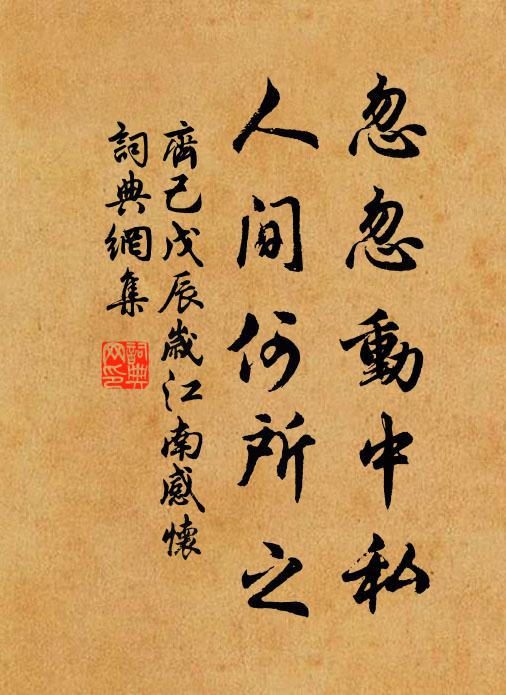 忽忽動中私
人間何所之
齊己戊辰歲江南感懷
詞典網集
詞典網印